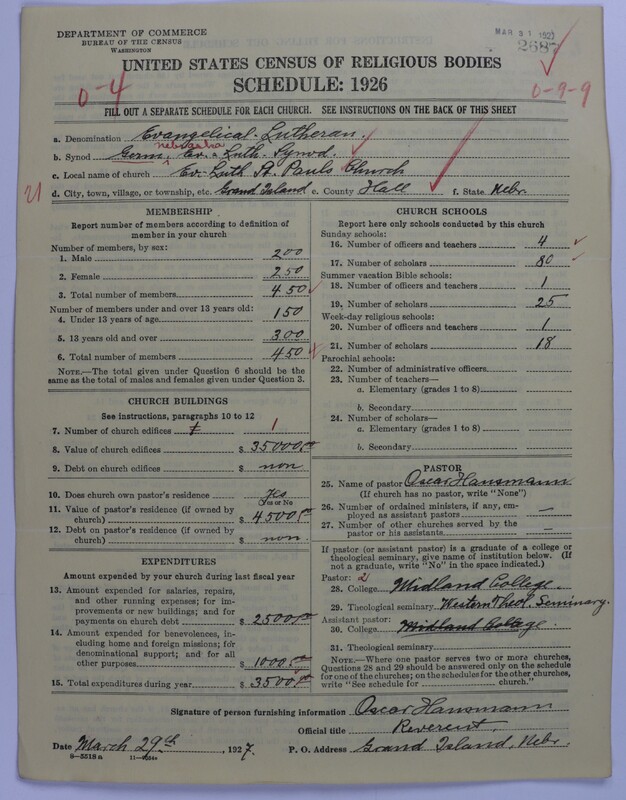 DEPARTMENT OF COMMERCE
BUREAU OF THE CENSUS
WASHINGTON
MAR 31 1927
2687
UNITED STATES CENSUS OF RELIGIOUS BODIES
SCHEDULE: 1926
0-4
0-9-9
FILL OUT A SEPARATE SCHEDULE FOR EACH CHURCH. SEE INSTRUCTIONS ON THE BACK OF THIS SHEET
a. Denomination Evangelical Lutheran.
nebraska
b. Synod Germ. Ev. Luth. Synod.
c. Local name of church Ev. Luth St. Pauls Church
21
d. City, town, village, or township, etc. Grand Island e. County Hall f. State Nebr.
MEMBERSHIP
Report number of members according to definition of member in your church
Number of members, by sex:
1. Male 200
2. Female 250
3. Total number of members 450
Number of members under and over 13 years old:
4. Under 13 years of age 150
5. 13 years old and over 300
6. Total number of members 450
NOTE.—The total given under Question 6 should be the same as the total of males and females given under Question 3.
CHURCH BUILDINGS
See instructions, paragraphs 10 to 12
7. Number of church edifices 1
8. Value of church edifices $ 35000.00
9. Debt on church edifices $ non
10. Does church own pastor's residence Yes
Yes or No
11. Value of pastor's residence (if owned by church) $ 4500.00
12. Debt on pastor's residence (if owned by church) $ non
EXPENDITURES
Amount expended by your church during last fiscal year
13. Amount expended for salaries, repairs, and other running expenses; for improvements or new buildings; and for payments on church debt $ 2500.00
14. Amount expended for benevolences, including home and foreign missions; for denominational support; and for all other purposes $ 1000.00
15. Total expenditures during year $ 3500.00
CHURCH SCHOOLS
Report here only schools conducted by this church
Sunday schools:
16. Number of officers and teachers 4
17. Number of scholars 80
Summer vacation Bible schools:
18. Number of officers and teachers 1
19. Number of scholars 25
Week-day religious schools:
20. Number of officers and teachers 1
21. Number of scholars 18
Parochial schools:
22. Number of administrative officers
23. Number of teachers—
a. Elementary (grades 1 to 8)
b. Secondary
24. Number of scholars—
a. Elementary (grades 1 to 8)
b. Secondary
PASTOR
25. Name of pastor Oscar Hansmann
(If church has no pastor, write "None")
26. Number of ordained ministers, if any, employed as assistant pastors —
27. Number of other churches served by the pastor or his assistants —
If pastor (or assistant pastor) is a graduate of a college or theological seminary, give name of institution below. (If not a graduate, write "No" in the space indicated.)
Pastor: 2
28. College Midland College.
29. Theological seminary Western Theol. Seminary.
Assistant pastor:
30. College Midland College.
31. Theological seminary
NOTE.—Where one pastor serves two or more churches, Questions 28 and 29 should be answered only on the schedule for one of the churches; on the schedules for the other churches, write "See schedule for church."
Signature of person furnishing information Oscar Hansmann
Official title Reverent,
Date March 29th, 1927.
P. O. Address Grand Island, Nebr.
8-5518a